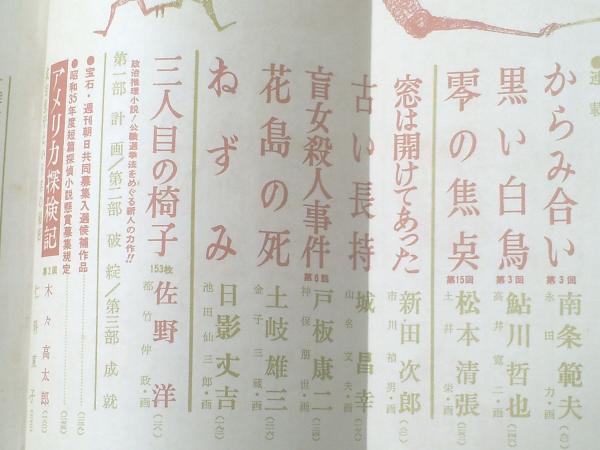 連載
からみ合い 第3回 南条範夫
永田力・画
黒い白鳥 第3回 鮎川哲也
高井寛二・画
零の焦点 第15回 松本清張
土井栄・画
窓は開けてあった 新田次郎
市川禎男・画
古い長持 城昌幸
山名文夫・画
盲女殺人事件 第6回 戸板康二
神保朋世・画
花島の死 土岐雄三
金子三蔵・画
ねずみ 日影丈吉
池田仙三郎・画
三人目の椅子 153枚 佐野洋
政治推理小説!公職選挙法をめぐる新人の力作!!
都竹伸政・画
第一部 計画/第二部 破綻/第三部 成就
●宝石・週刊朝日共同募集入選候補作品
●昭和35年度短篇探偵小説懸賞募集規定
アメリカ探検記 第2回 木々高太郎